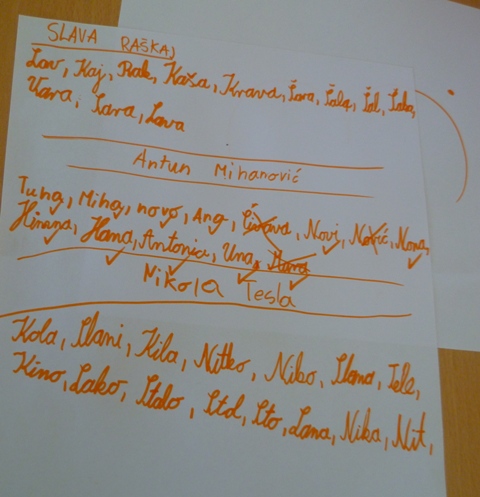 SLAVA RAŠKAJ
Lav, Kaj, Rak, Kaša, Krava, Šara, Šala, Šal, Saka,
Vara, Sara, Lava
Antun Mihanović
Tuna, Miha, novo, Ana, Novi, Nović, Nona,
Hinana, Hana, Antonia, Una,
Nikola Tesla
Kola, Slani, Kila, Nitko, Niko, Slana, Tele,
Kino, Lako, Stalo, Std, Sto, Lana, Nika, Nit,